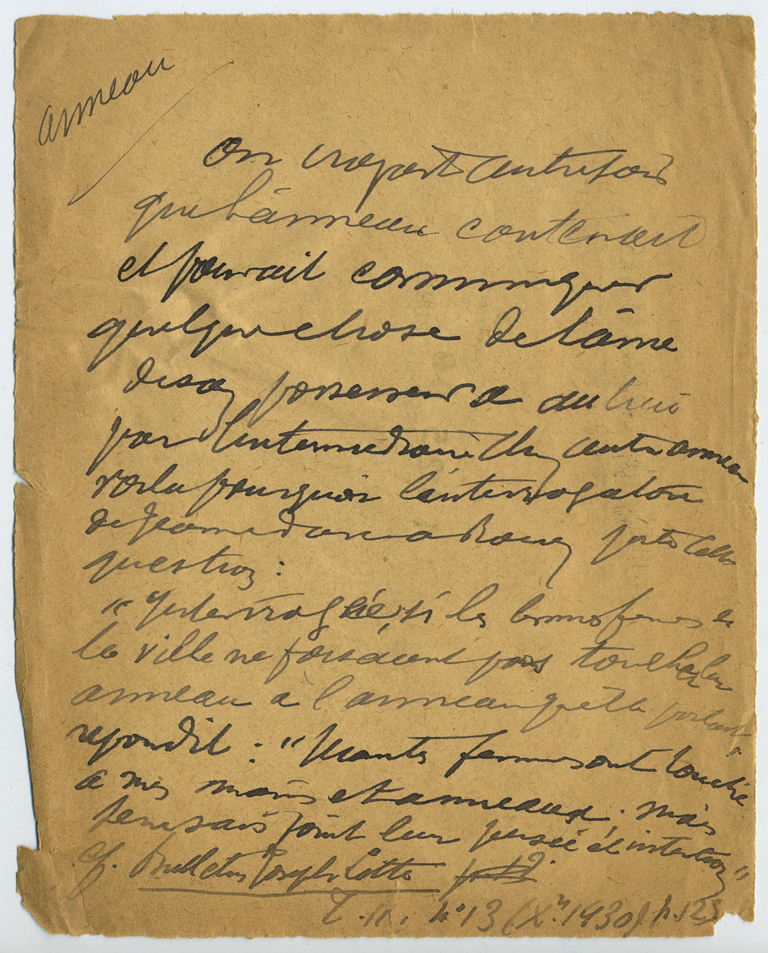 anneau
On croyait autrefois
que l'anneau contenait
et pouvait communiquer
quelque chose de l'âme
de son possesseur à autrui
par l'intermédiaire d'un autre anneau
voilà pourquoi l'interrogatoire
de Jeanne d'Arc à Rouen porte cette
question :
"Interrogée, si les bonnes femmes de
la ville ne faisaient pas toucher leur
anneau à l'anneau qu'elle portait,
répondit : "Maintes femmes ont touché
à mes mains et anneaux. mais
je ne sais point leur pensée et intention"
cf. Bulletin Joseph Lotte
T. II. n° 13 (Xbre 1930) p. 123